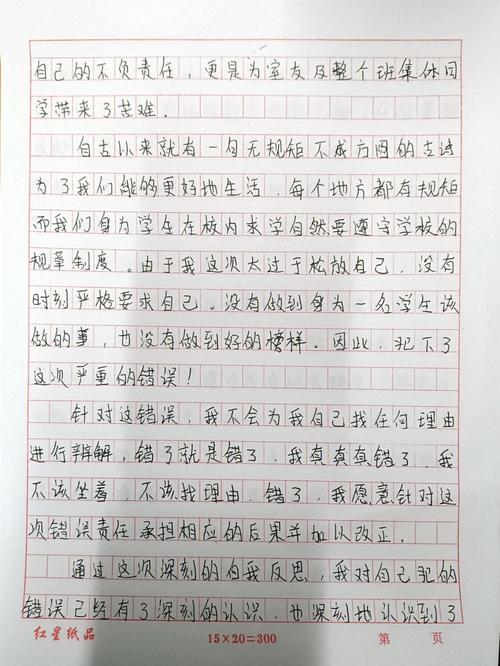 自己的不负责任，更是为室友及整个班集体同
学带来了苦难．
自古以来就有一句无规矩不成方圆的古诗
为了我们能够更好地生活，每个地方都有规矩
而我们身为学生在校内求学自然要遵守学校的
规章制度。由于我这次太过于松放自己，没有
时刻严格要求自己。没有做到身为一名学生该
做的事，也没有做到好的榜样。因此，犯下了
这次严重的错误！
针对这错误，我不会为我自己找任何理由
进行辩解，错了就是错了，我真真真错了，我
不该坐着，不该找理由，错了，我愿意针对这
次错误责任承担相应的后果并加以改正．
通过这次深刻的自我反思，我对自己犯的
错误已经有了深刻的认识，也深刻地认识到了
红星纸品 15×20=300 第 页